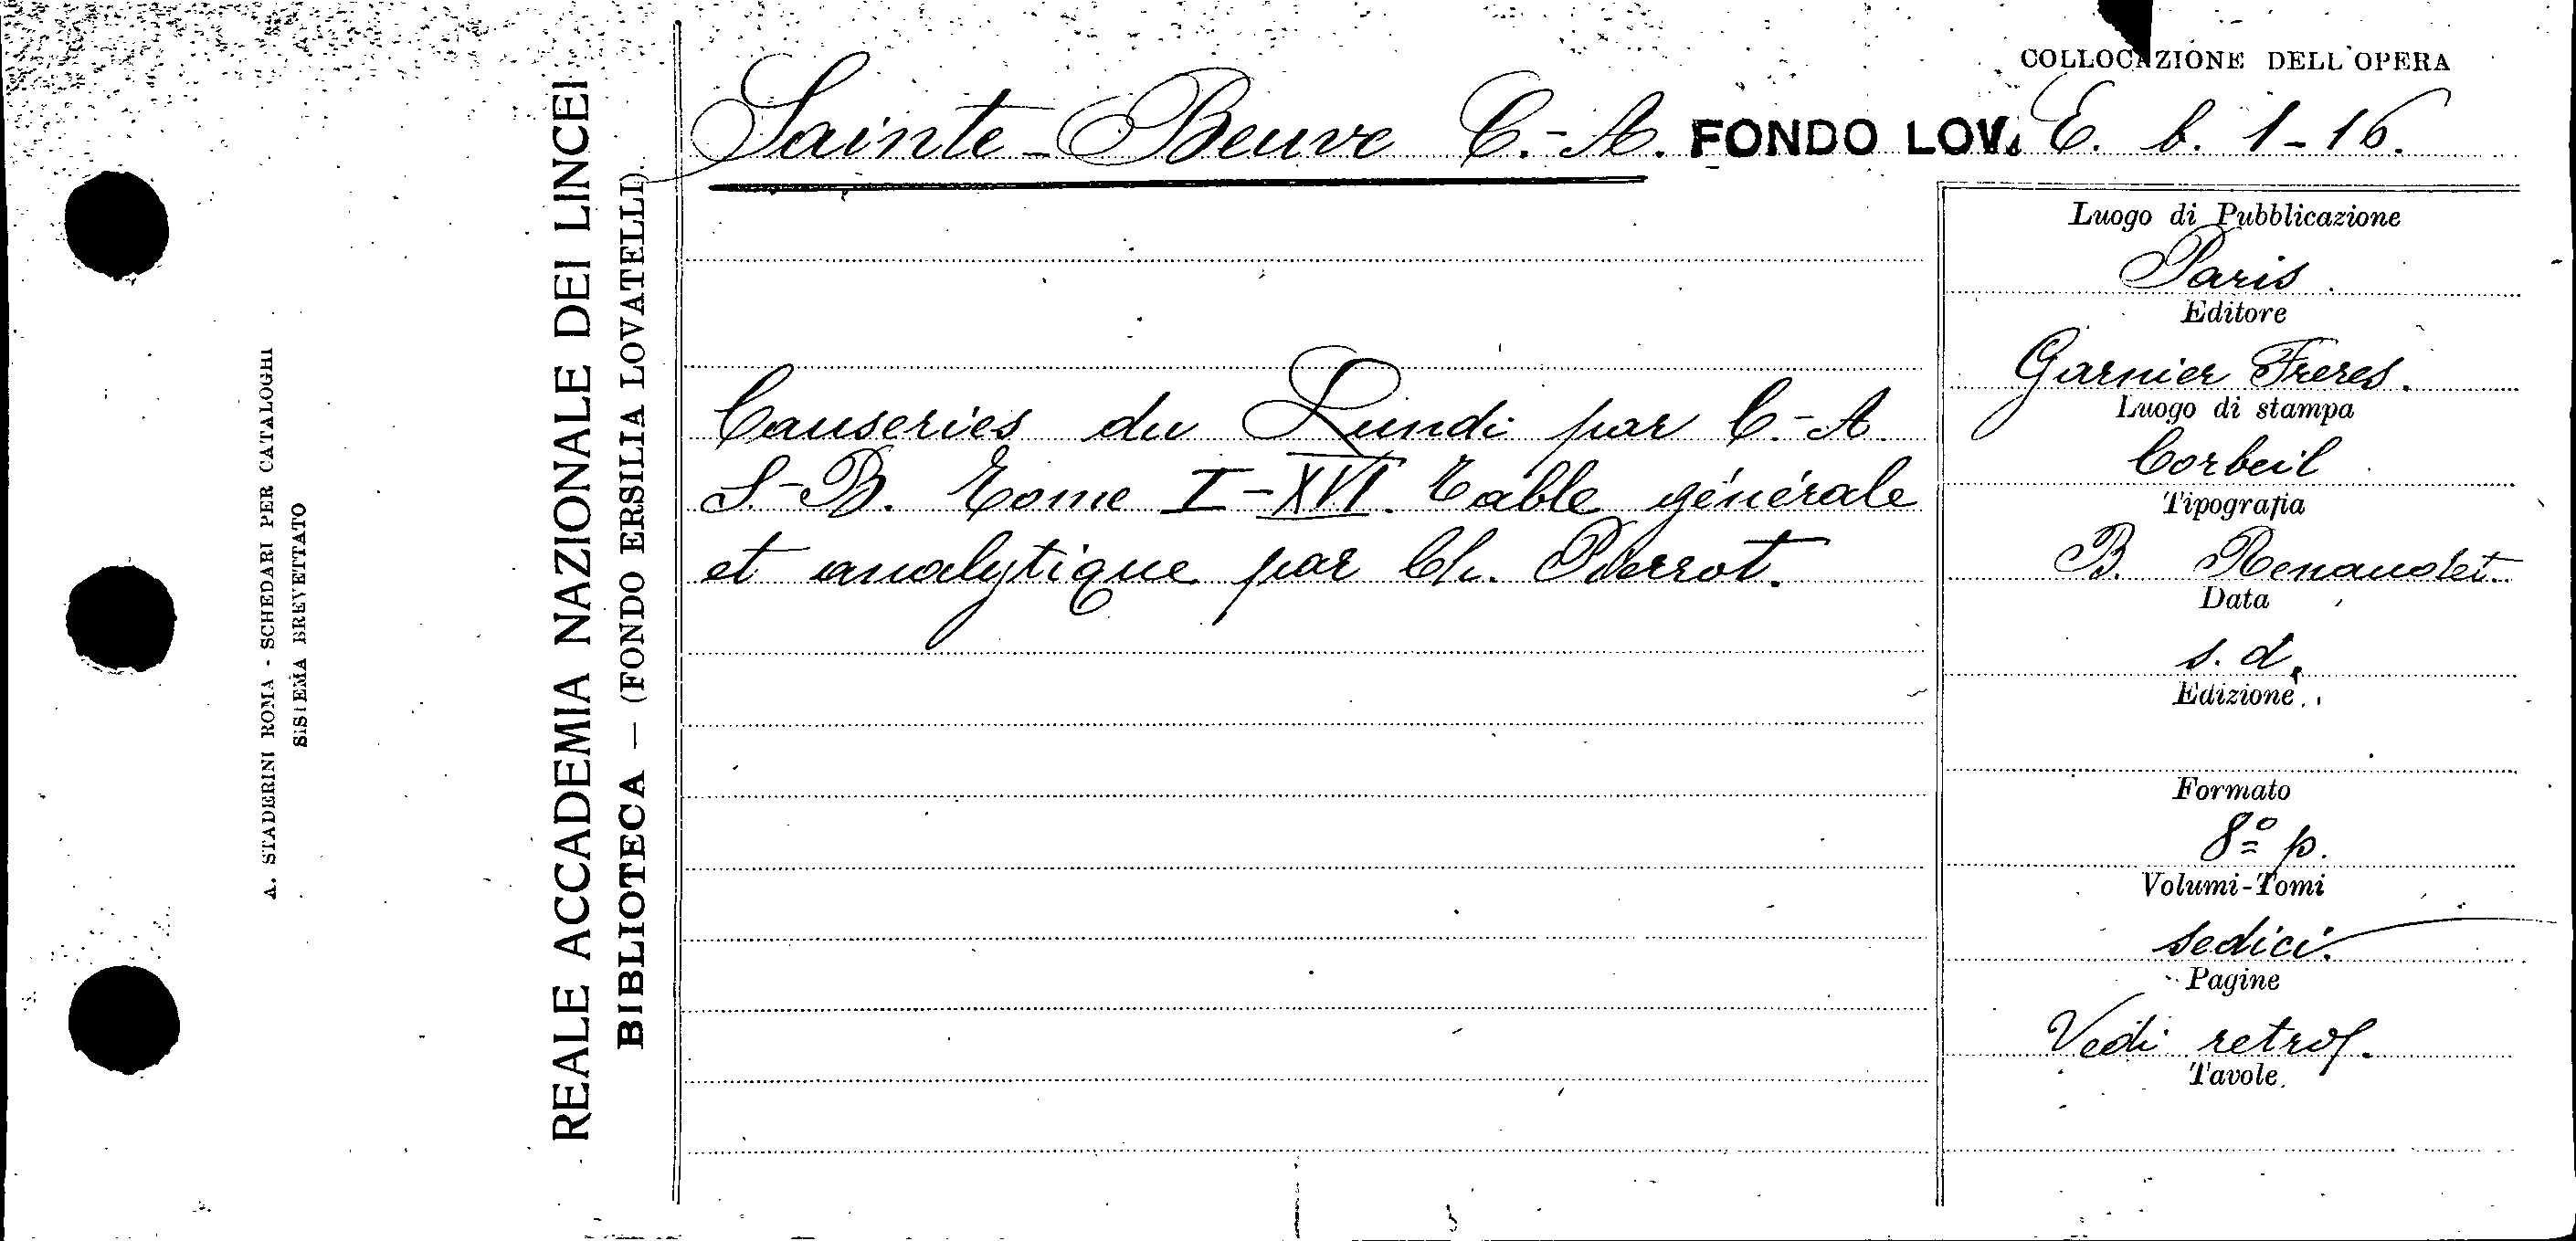 COLLOCAZIONE DELL'OPERA
Sainte-Beuve C.-A. FONDO LOV. E. b. 1-16.
Causeries du Lundi par C.-A.
S.-B. Tome I-XVI. Table générale
et analytique par Ch. Pierrot.
Luogo di Pubblicazione
Paris.
Editore
Garnier Freres.
Luogo di stampa
Corbeil
Tipografia
B. Renaudet
Data
s. d.
Edizione
Formato
8º p.
Volumi-Tomi
sedici.
Pagine
Vedi retro.
Tavole
REALE ACCADEMIA NAZIONALE DEI LINCEI
BIBLIOTECA — (FONDO ERSILIA LOVATELLI)
A. STADERINI ROMA - SCHEDARI PER CATALOGHI
SISTEMA BREVETTATO